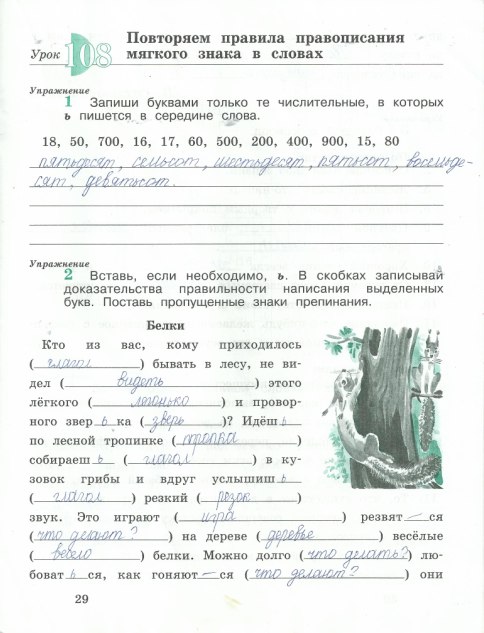 Урок 108
Повторяем правила правописания
мягкого знака в словах
Упражнение
1 Запиши буквами только те числительные, в которых
ь пишется в середине слова.
18, 50, 700, 16, 17, 60, 500, 200, 400, 900, 15, 80
пятьдесят, семьсот, шестьдесят, пятьсот, восемьде-
сят, девятьсот.
Упражнение
2 Вставь, если необходимо, ь. В скобках записывай
доказательства правильности написания выделенных
букв. Поставь пропущенные знаки препинания.
Белки
Кто из вас, кому приходилось
( глагол ) бывать в лесу, не ви-
дел ( видеть ) этого
лёгкого ( легонько ) и провор-
ного звер ь ка ( зверь )? Идёш ь
по лесной тропинке ( тропка )
собираеш ь ( глагол ) в ку-
зовок грибы и вдруг услышиш ь
( глагол ) резкий ( резок )
звук. Это играют ( игра ) резвят — ся
( что делают? ) на дереве ( деревье ) весёлые
( весело ) белки. Можно долго ( что делать? ) лю-
боват ь ся, как гоняют — ся ( что делают? ) они
29